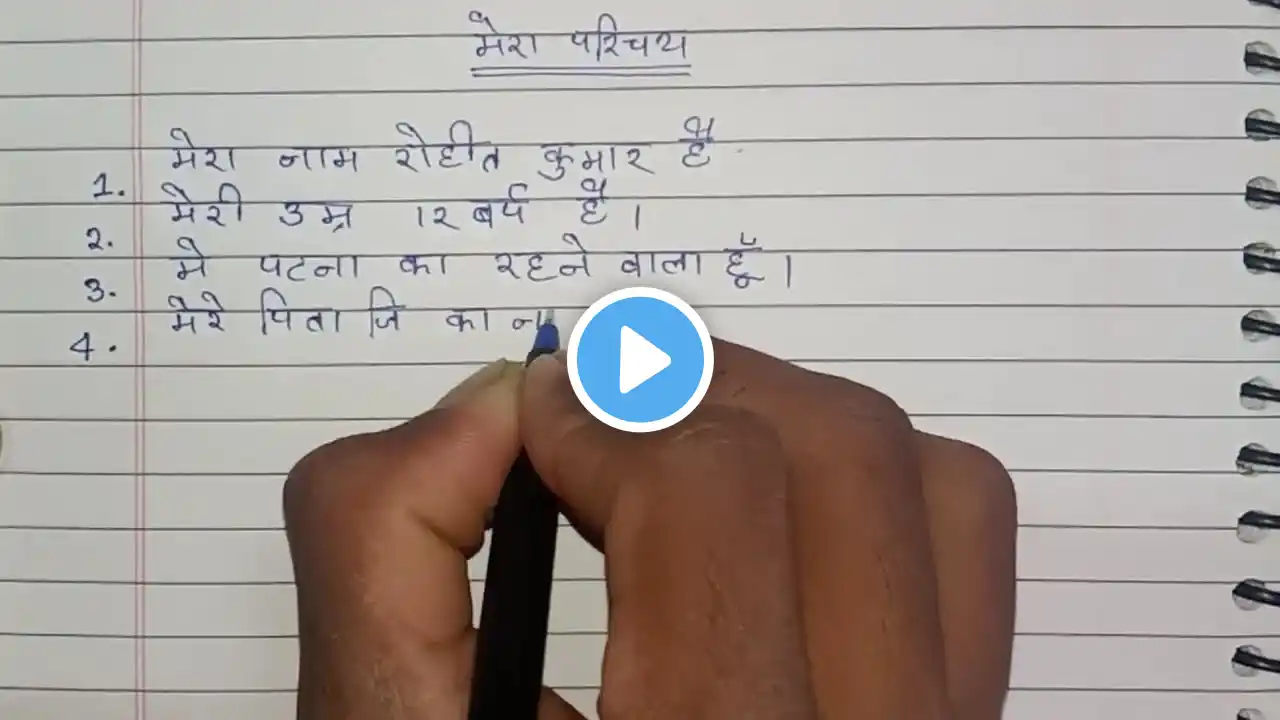 मेरा परिचय
1. मेरा नाम रोहीत कुमार है
2. मेरी उम्र 12 बर्ष है ।
3. मे पटना का रहने वाला हूँ ।
4. मेरे पिता जि का ना